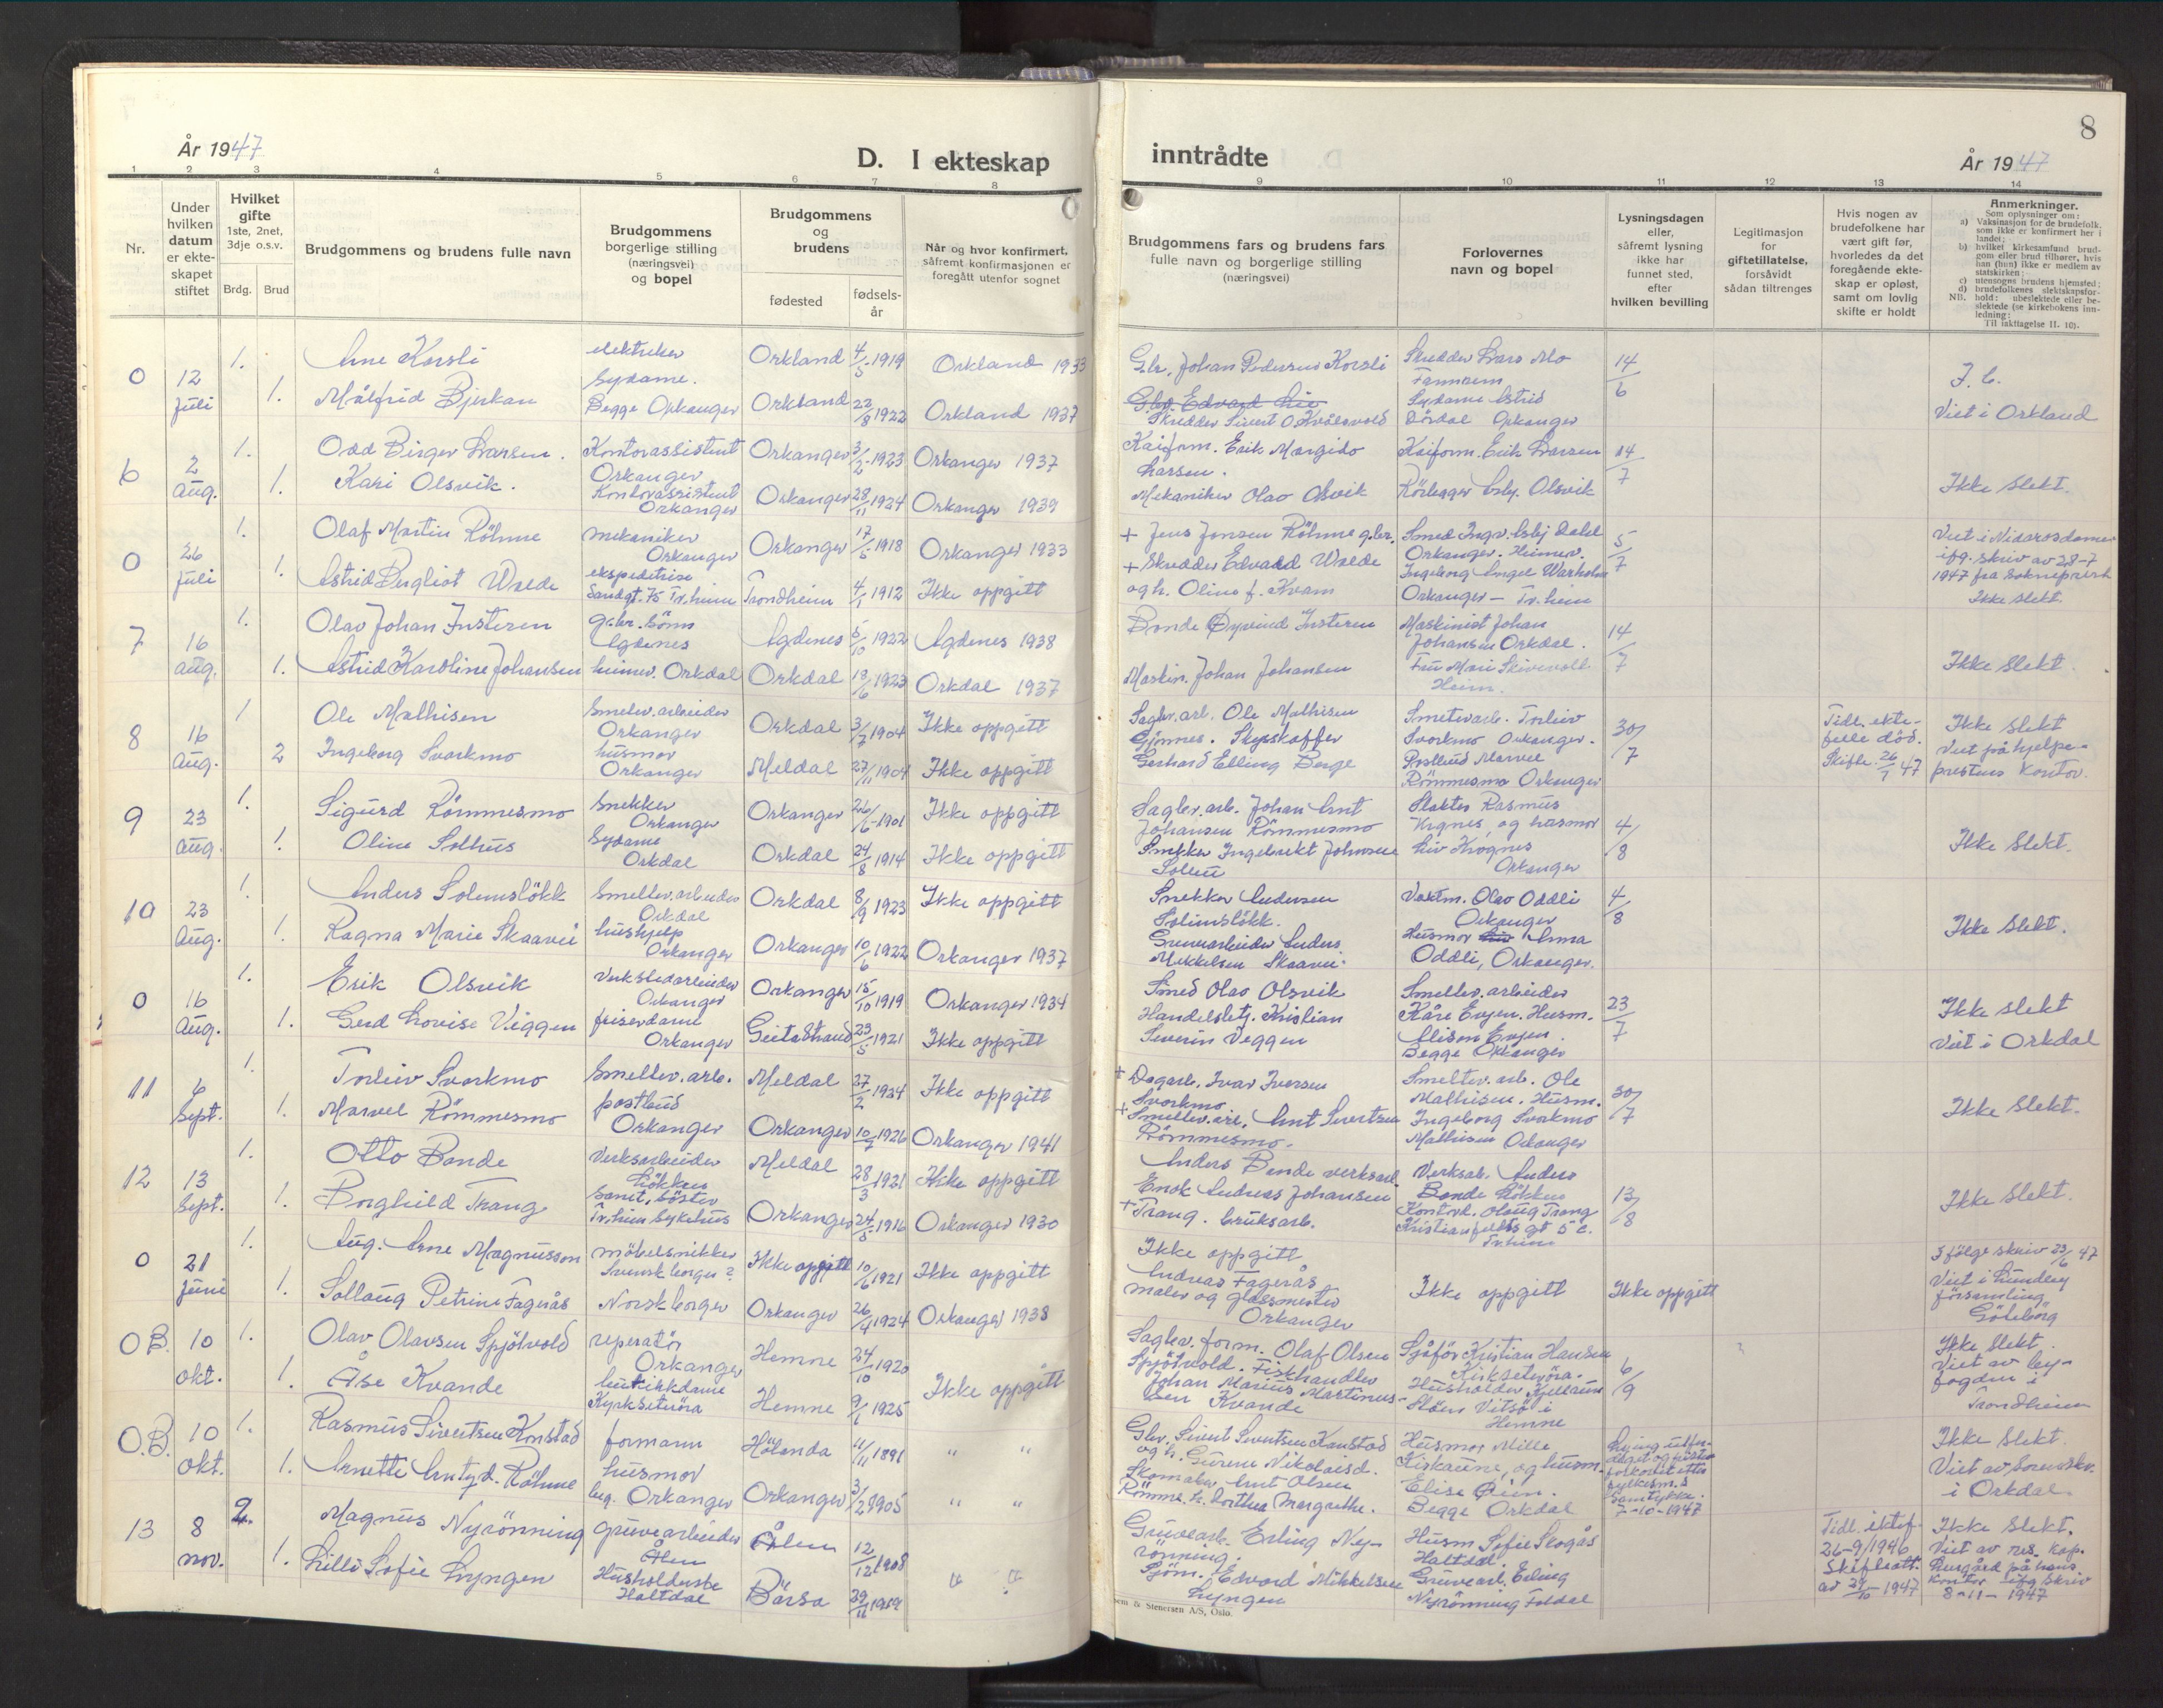 År 1947
D. I ekteskap
inntrådte
8
År 1947
1 2 3 4 5 6 7 8 9 10 11 12 13 14
Nr.
Under hvilken datum er ekteskapet stiftet
Hvilket gifte
1ste, 2net, 3dje o.s.v.
Brdg. Brud
Brudgommens og brudens fulle navn
Brudgommens borgerlige stilling (næringsvei) og bopel
Brudgommens og brudens
fødested
fødsels-år
Når og hvor konfirmert, såfremt konfirmasjonen er foregått utenfor sognet
Brudgommens fars og brudens fars fulle navn og borgerlige stilling (næringsvei)
Forlovernes navn og bopel
Lysningsdagen eller, såfremt lysning ikke har funnet sted, efter hvilken bevilling
Legitimasjon for giftetillatelse, forsåvidt sådan tiltrenges
Hvis nogen av brudefolkene har vært gift før, hvorledes da det foregående ekteskap er opløst, samt om lovlig skifte er holdt
Anmerkninger.
Som oplysninger om:
a) Vaksinasjon for de brudefolk, som ikke er konfirmert her i landet;
b) hvilket kirkesamfund brudgom eller brud tilhører, hvis han (hun) ikke er medlem av statskirken;
c) utensogns brudens hjemsted;
d) brudefolkenes slektskapsforhold: ubeslektede eller beslektede (se kirkebokens innledning:
NB.
Til iakttagelse II. 10).
0 12 Juli 1. Arne Korsli elektriker Orkland 4/5 1919 Orkland 1933
1. Målfrid Bjerkan Sydame. Begge Orkanger Orkland 22/8 1922 Orkland 1937
Gbr. Johan Pedersen Korsli
Skredder Lars Mo Fannrem
Sydame Astrid Dördal Orkanger
14/6
Viet i Orkland
6 2 Aug. 1. Odd Birger Larsen. Kontorassistent Orkanger Orkanger 3/2 1923 Orkanger 1937
1. Kari Olsvik. Kontorassistent Orkanger Orkanger 28/11 1924 Orkanger 1939
Kaiform. Erik Margido Larsen.
Mekaniker Olav Olsvik
Kaiform. Erik Larsen
Rörlegger Asbj. Olsvik
14/7
Ikke Slekt.
0 26 Juli 1. Olaf Martin Röhme mekaniker Orkanger Orkanger 17/5 1918 Orkanger 1933
1. Astrid Bergliot Walde ekspeditrise Sandgt. 75 Tr.heim Trondheim 4/1 1912 Ikke oppgitt
+ Jens Jonsen Röhme gbr.
+ Skredder Edvard Walde og h. Oline f. Kvam
Smed Ingv. Asbj Dahl Orkanger. Heimev.
Ingeborg Inger Warholm Orkanger – Tr.heim
5/7
Viet i Nidarosdomen ifg. skriv av 28-7 1947 fra Sokneprest
Ikke Slekt.
7 16 Aug. 1. Olav Johan Insteren gbr. sönn Agdenes Agdenes 5/10 1922 Agdenes 1938
1. Astrid Karoline Johansen heimev. Orkdal Orkdal 18/6 1923 Orkdal 1937
Bonde Øyvind Insteren
Maskin. Johan Johansen
Maskinist Johan Johansen Orkdal.
Fru Mari Skivevoll Heim.
14/7
Ikke Slekt.
8 16 Aug. 1 Ole Mathisen Smelev. arbeider Orkanger Orkdal 3/7 1904 Ikke oppgitt
2 Ingeborg Svorkmo husmor Orkanger Meldal 27/11 1904 Ikke oppgitt
Sagbr. arb. Ole Mathisen
Gjönnes. Skysskaffer
Gerhard Elling Berge
Smelverarb. Torleiv Svorkmo Orkanger.
Postbud Marvel Römmesmo Orkanger
30/7
Tidl. ektefelle död. Skifte 26/7 47
Ikke Slekt
Viet på hjelpeprestens kontor.
9 23 Aug. 1. Sigurd Römmesmo Snekker Orkanger Orkanger 26/6 1901 Ikke oppgitt
1. Oline Solhus Sydame Orkdal Orkdal 24/8 1914 Ikke oppgitt
Sagbr. arb. Johan Arnt Johansen Römmesmo
Snekker Ingebrekt Johnsen
Slakter Rasmus Krognes, og husmor
Liv Krognes Orkanger
4/8
Ikke Slekt.
10 23 Aug. 1. Anders Solemslökk Smeltev. arbeider Orkdal Orkdal 8/9 1923 Ikke oppgitt
1. Ragna Marie Skaavii hushjelp Orkanger Orkanger 10/6 1922 Orkanger 1937
Snekker Andersen Solemslökk.
Gruvearbeider Anders Mikkelsen Skaavii.
Vaktm. Olav Oddli Orkanger
Husmor Anna Oddli, Orkanger.
4/8
Ikke Slekt.
0 16 Aug. 1. Erik Olsvik Verkstedarbeider Orkanger Orkanger 15/10 1919 Orkanger 1934
1. Gerd Lovise Viggen friserdame Orkanger Geitastrand 23/5 1921 Ikke oppgitt
Smed Olav Olsvik
Handelsbetj. Kristian Severin Veggen
Smeltev. arbeider Kåre Evjen. Husm.
Alison Evjen. Begge Orkanger
23/7
Ikke Slekt
Viet i Orkdal
11 6 Sept. 1. Torleiv Svorkmo Smeltev. arb. Meldal 27/2 1924 Ikke oppgitt
1. Marvel Römmesmo postbud Orkanger Orkanger 10/7 1926 Orkanger 1941
+ Dagarb. Ivar Iversen Svorkmo
+ Smeltev. arb. Arnt Sivertsen Römmesmo.
Smeltev. arb. Ole Mathisen. Husm.
Ingeborg Svorkmo Mathisen Orkanger
30/7
Ikke Slekt.
12 13 Sept. 1. Otto Bonde Verksarbeider Lökken Meldal 28/3 1921 Ikke oppgitt
1. Borghild Trang Sanit. söster Tr.heim Sykehus Orkanger 24/5 1916 Orkanger 1930
Anders Bonde verksarb.
Enok Andreas Johansen
+ Trang. bruksarb.
Verksab. Anders Bonde Lökken
Kontord. Olaug Trang
Kristianfeldts gt 5 c. Tr.heim
13/8
Ikke Slekt.
0 21 Juni 1. Aug. Arne Magnusson möbelsnikker Svensk borger? Ikke oppgitt 10/6 1921 Ikke oppgitt
1. Sollaug Petrine Fagerås Norsk borger Orkanger 26/4 1924 Orkanger 1938
Ikke oppgitt
Andreas Fagerås maler og glassmester Orkanger
Ikke oppgitt
Ikke oppgitt
Ifölge skriv 23/6 47
Viet i Lundby församling Göteborg
OB. 10 okt. 1. Olav Olavsen Spjötvold reperatör Orkanger Hemne 24/10 1920
1. Åse Kvande butikkdame Kyrksæteröra Hemne 9/1 1925 Ikke oppgitt
Sagbr. form. Olaf Olsen Spjötvold. Fiskhandler
Johan Marius Martinussen Kvande
Sjåför Kristian Hansen Kirkseteröra.
6/9
Ikke Slekt.
Viet av byfogden i Trondheim
O.B. 10 okt. 1. Rasmus Sivertsen Konstad formann Hölonda 11/11 1891 " "
1. Arnette Arntsd. Röhme husmor beg. Orkanger Orkanger 3/2 1905 " "
Gbr. Sivert Sivertsen Konstad og h. Gurene Nikolaisd.
Skomaker Arnt Olsen Römme. h. Dorthea Margrethe.
Husmor Mille Kirkaune, og husm.
Elise Öien. Begge Orkdal
Samtykke. 7-10-1947
Ikke Slekt.
Viet av Sorenskr. i Orkdal.
13 8 nov. 2. Magnus Nyrönning gruvearbeider Ålen Ålen 12/12 1908
1. Lilli Sofie Lyngen Husholderske Haltdal Börsa " "
Gruvearb. Erling Nyrönning.
Sjöm. Edvard Mikkelsen Lyngen
Husm Sofie Skogås Haltdal.
Gruvearb. Erling Nyrönning Foldal
Tidl. ektef. 26-9/1946 Skifteatt. av 24/10 – 1947
Ikke Slekt.
Viet av res. kap. på hans kontor ifg. Skriv 8-11-1947
Sem & Stenersen A/S, Oslo.